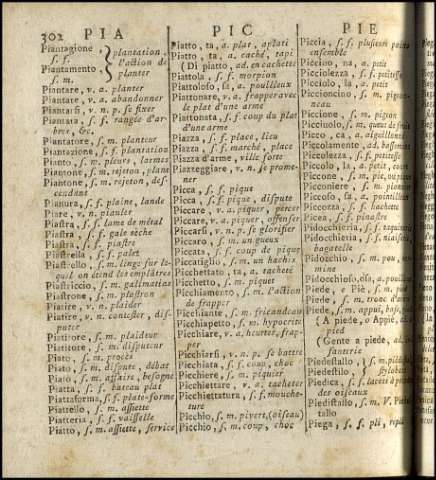 302 PIA
Piantagione
s. f.
Piantamento,
s. m.
plantation,
l'action de
planter
Piantare, v. a. planter
Piantare, v. a. abandonner
Piantarsi, v. n. p. se fixer
Piantata, s. f. rangée d'ar-
bres, &c.
Piantatore, s. m. planteur
Piantazione, s. f. plantation
Pianto, s. m. pleurs, larmes
Piantone, s. m. rejeton, plane
Piantone, s. m. rejeton, des-
cendant
Pianura, s. f. plaine, lande
Piare, v. n. piauler
Piastra, s. f. lame de métal
Piastra, s. f. gale sèche
Piastra, s. f. piastre
Piastrella, s. f. palet
Piastrello, s. m. linge sur le-
quel on étend les emplâtres
Piastriccio, s. m. galimatias
Piastrone, s. m. plastron
Piatire, v. n. plaider
Piatire, v. n. contester, dis-
puter
Piatitore, s. m. plaideur
Piatitore, s. m. disputeur
Piato, s. m. procès
Piato, s. m. dispute, débat
Piato, s. m. affaire, besogne
Piatta, s. f. bateau plat
Piattaforma, s. f. plate-forme
Piattello, s. m. assiette
Piatteria, s. f. vaisselle
Piatto, s. m. assiette, service
PIC
Piatto, ta, a. plat, aplati
Piatto, ta, a. caché, tapi
(Di piatto, ad. en cachette
Piattola, s. f. morpion
Piattoloso, sa, a. pouilleux
Piattonare, v. a. frapper avec
le plat d'une arme
Piattonata, s. f. coup du plat
d'une arme
Piazza, s. f. place, lieu
Piazza, s. f. marché, place
Piazza d'arme, ville forte
Piazzeggiare, v. n. se prome-
ner
Picca, s. f. pique
Picca, s. f. pique, dispute
Piccare, v. a. piquer, percer
Piccare, v. a. piquer, offenser
Piccarsi, v. n. p. se glorifier
Piccaro, s. m. un gueux
Piccata, s. f. coup de pique
Piccatiglio, s. m. un hachis
Picchettato, ta, a. tacheté
Picchetto, s. m. piquet
Picchiamento, s. m. l'action
de frapper
Picchiante, s. m. fricandeau
Picchiapetto, s. m. hypocrite
Picchiare, v. a. heurter, frap-
per
Picchiarsi, v. n. p. se battre
Picchiata, s. f. coup, choc
Picchiere, s. m. piquier
Picchiettare, v. a. tacheter
Picchiettatura, s. f. mouche-
ture
Picchio, s. m. pivert, (oiseau)
Picchio, s. m. coup, choc
PIE
Piccia, s. f. plusieurs pains
ensemble
Piccino, na, a. petit
Picciolezza, s. f. petitesse
Picciolo, la, a. petit
Piccioncino, s. m. pigeon-
neau
Piccione, s. m. pigeon
Picciuolo, s. m. queue de fruit
Picco, ca, a. aiguillonné
Piccolamente, ad. bassement
Piccolezza, s. f. petitesse
Piccolo, la, a. petit, court
Piccone, s. m. pic, ou pioche
Picconiere, s. m. pionnier
Piccoso, sa, a. pointilleux
Piccozza, s. f. hachette
Picea, s. f. pinastre
Pidocchieria, s. f. taquinerie
Pidocchieria, s. f. niaiserie,
bagatelle
Pidocchio, s. m. pou, ver-
mine
Pidocchioso, osa, a. pouilleux
Piede, e Piè, s. m. pied
Piede, s. m. tronc d'arbre
Piede, s. m. appui, base, pied
(A piede, o Appiè, a
pied
(Gente a piede, ad. in-
fanterie
Piedestallo,
Piedestilo,
s. m. piédestal,
stylobate
Piedica, s. f. lacets à prendre
des oiseaux
Piedistallo, s. m. V. Piedes-
tallo
Piega, s. f. pli, repli